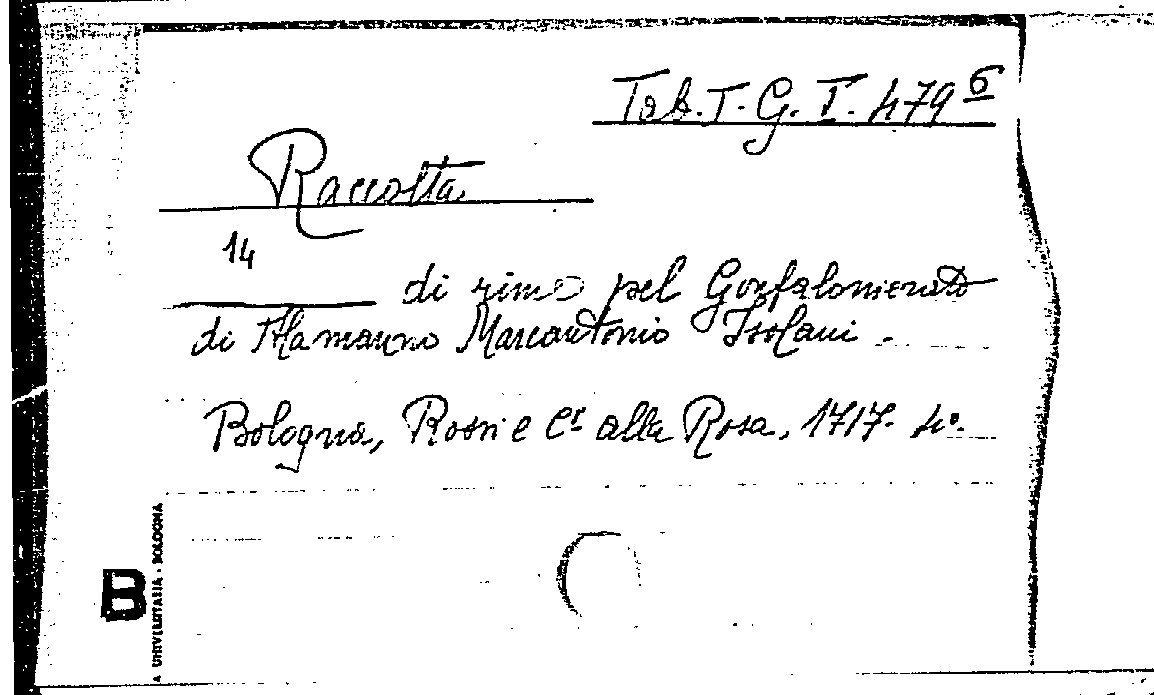 Tab. I. G. I. 479 6
Raccolta
14
di rime pel Gonfalonierato
di Alamanno Marcantonio Isolani.
Bologna, Rossi e Ci alla Rosa, 1717. 4°.
B
A UNIVERSITARIA - BOLOGNA